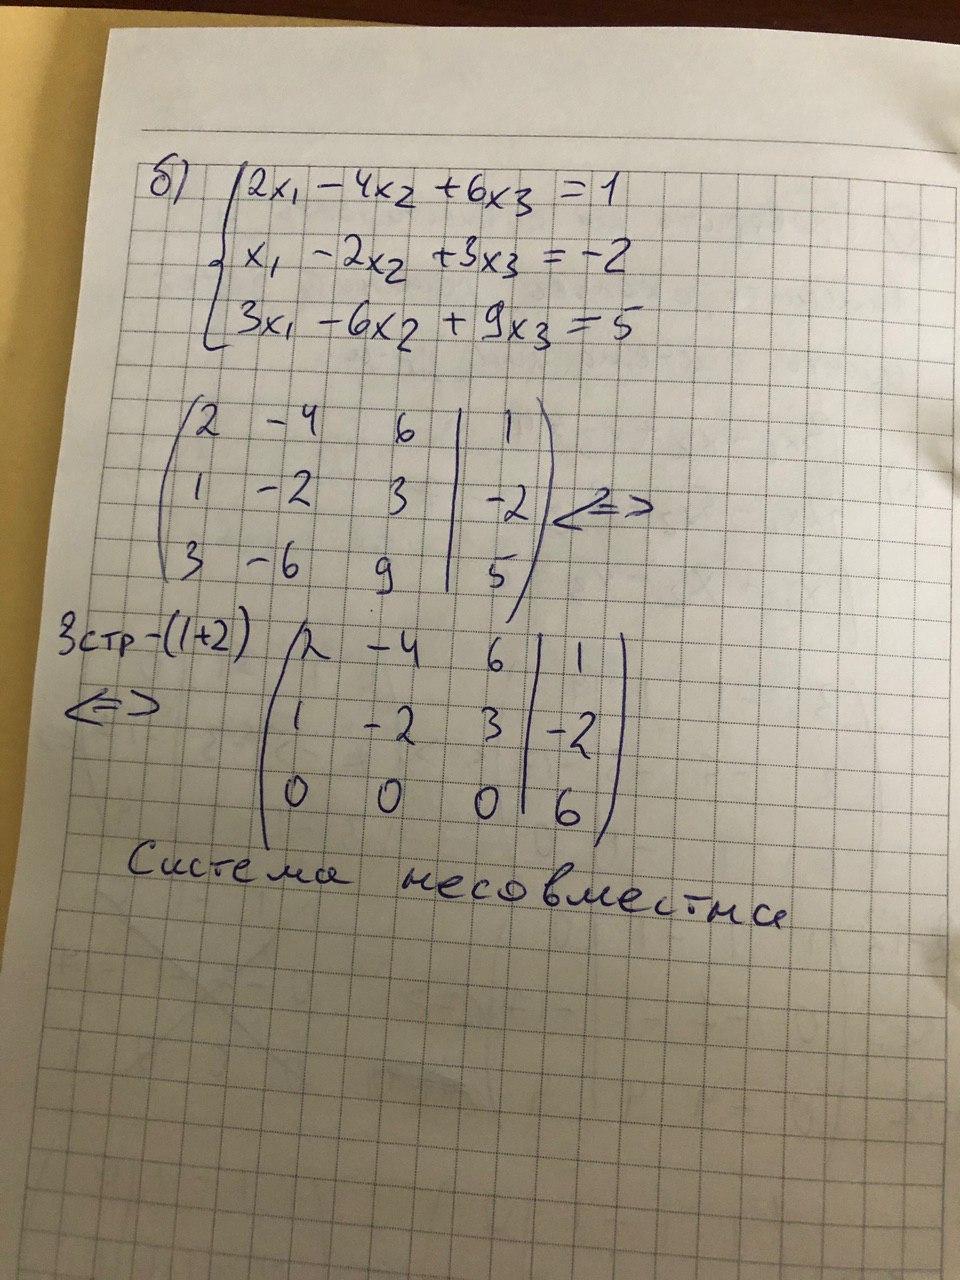 б) { 2x₁ - 4x₂ + 6x₃ = 1
x₁ - 2x₂ + 3x₃ = -2
3x₁ - 6x₂ + 9x₃ = 5
( 2 -4 6 | 1 )
1 -2 3 | -2 <=>
3 -6 9 | 5
3стр-(1+2) ( 2 -4 6 | 1 )
<=> 1 -2 3 | -2
0 0 0 | 6
Система несовместна